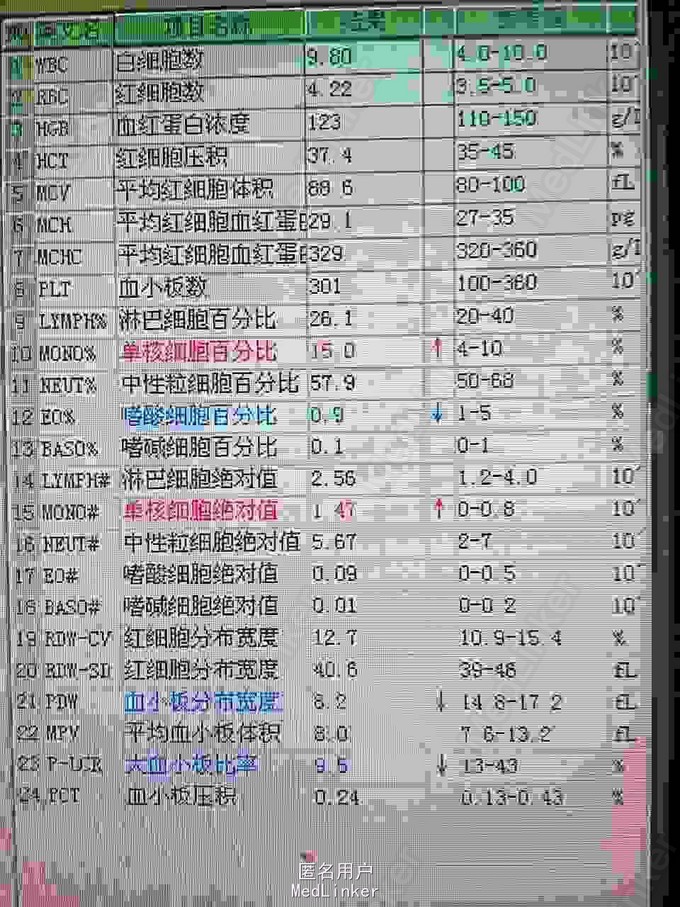 英文名 项目名称 结果
1 WBC 白细胞数 9.80 4.0-10.0 10^
2 RBC 红细胞数 4.22 3.5-5.0 10^
3 HGB 血红蛋白浓度 123 110-150 g/l
4 HCT 红细胞压积 37.4 35-45 %
5 MCV 平均红细胞体积 88.6 80-100 fL
6 MCH 平均红细胞血红蛋 29.1 27-35 pg
7 MCHC 平均红细胞血红蛋 329 320-360 g/l
8 PLT 血小板数 301 100-360 10^
9 LYMPH% 淋巴细胞百分比 26.1 20-40 %
10 MONO% 单核细胞百分比 15.0 ↑ 4-10 %
11 NEUT% 中性粒细胞百分比 57.9 50-68 %
12 EO% 嗜酸细胞百分比 0.9 ↓ 1-5 %
13 BASO% 嗜碱细胞百分比 0.1 0-1 %
14 LYMPH# 淋巴细胞绝对值 2.56 1.2-4.0 10^
15 MONO# 单核细胞绝对值 1.47 ↑ 0-0.8 10^
16 NEUT# 中性粒细胞绝对值 5.67 2-7 10^
17 EO# 嗜酸细胞绝对值 0.09 0-0.5 10^
18 BASO# 嗜碱细胞绝对值 0.01 0-0.2 10^
19 RDW-CV 红细胞分布宽度 12.7 10.9-15.4 %
20 RDW-SD 红细胞分布宽度 40.6 39-46 fL
21 PDW 血小板分布宽度 8.2 ↓ 14.8-17.2 fL
22 MPV 平均血小板体积 8.0 7.6-13.2 fL
23 P-LCR 大血小板比率 9.5 ↓ 13-43 %
24 PCT 血小板压积 0.24 0.13-0.43 %
匿名用户
MedLinker